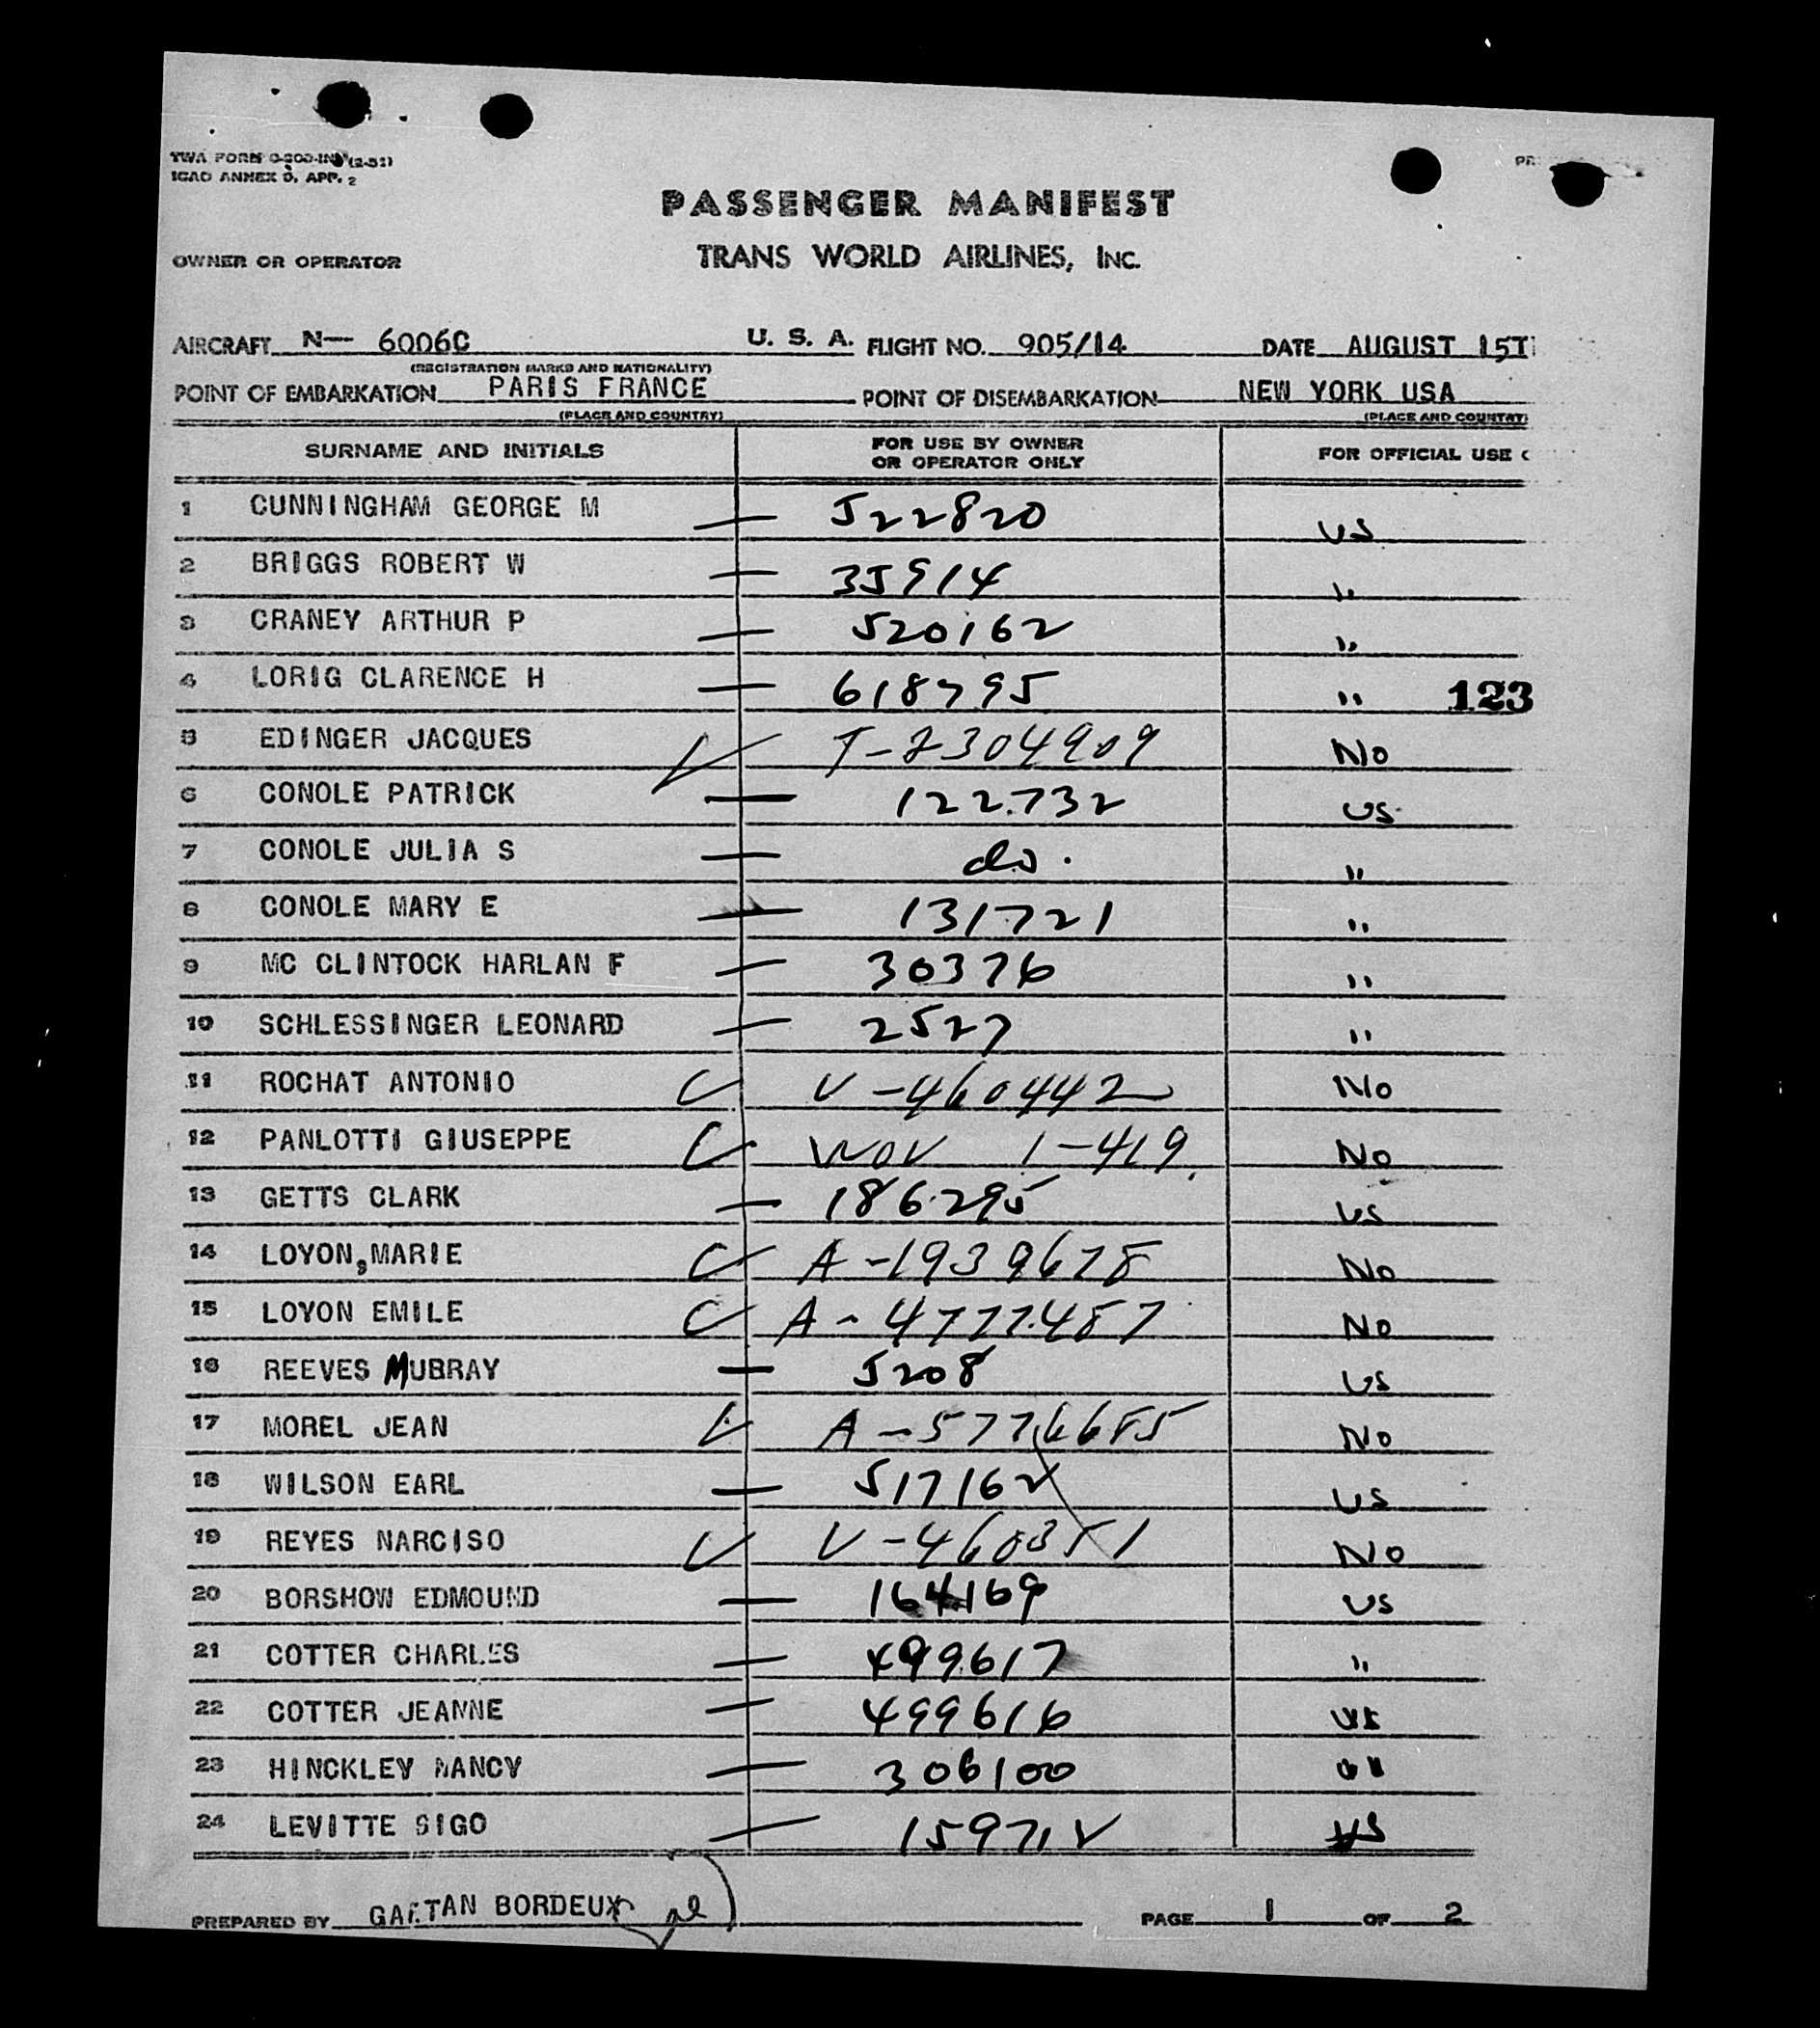 TWA FORM O-200-IN (2-51)
ICAO ANNEX 9, APP. 2
PASSENGER MANIFEST
OWNER OR OPERATOR TRANS WORLD AIRLINES, INC.
AIRCRAFT N— 6006C U. S. A. FLIGHT NO. 905/14 DATE AUGUST 15T
(REGISTRATION MARKS AND NATIONALITY)
POINT OF EMBARKATION PARIS FRANCE POINT OF DISEMBARKATION NEW YORK USA
(PLACE AND COUNTRY) (PLACE AND COUNTRY)
SURNAME AND INITIALS FOR USE BY OWNER OR OPERATOR ONLY FOR OFFICIAL USE
1 CUNNINGHAM GEORGE M — 522820 US
2 BRIGGS ROBERT W — 35914 "
3 CRANEY ARTHUR P — 520162 "
4 LORIG CLARENCE H — 618795 " 123
5 EDINGER JACQUES T-2304909 No
6 CONOLE PATRICK — 122732 US
7 CONOLE JULIA S — do. "
8 CONOLE MARY E — 131721 "
9 MC CLINTOCK HARLAN F — 30376 "
10 SCHLESSINGER LEONARD — 2527 "
11 ROCHAT ANTONIO V-460442 No
12 PANLOTTI GIUSEPPE WOV 1-419 No
13 GETTS CLARK — 186295 US
14 LOYON,MARIE A-1939678 No
15 LOYON EMILE A-4777487 No
16 REEVES MURRAY — 5208 US
17 MOREL JEAN A-5776685 No
18 WILSON EARL — 517162 US
19 REYES NARCISO V-460351 No
20 BORSHOW EDMOUND — 164169 US
21 COTTER CHARLES — 499617 "
22 COTTER JEANNE — 499616 US
23 HINCKLEY NANCY — 306100 "
24 LEVITTE SIGO — 159712 US
PREPARED BY GAETAN BORDEUX PAGE 1 OF 2